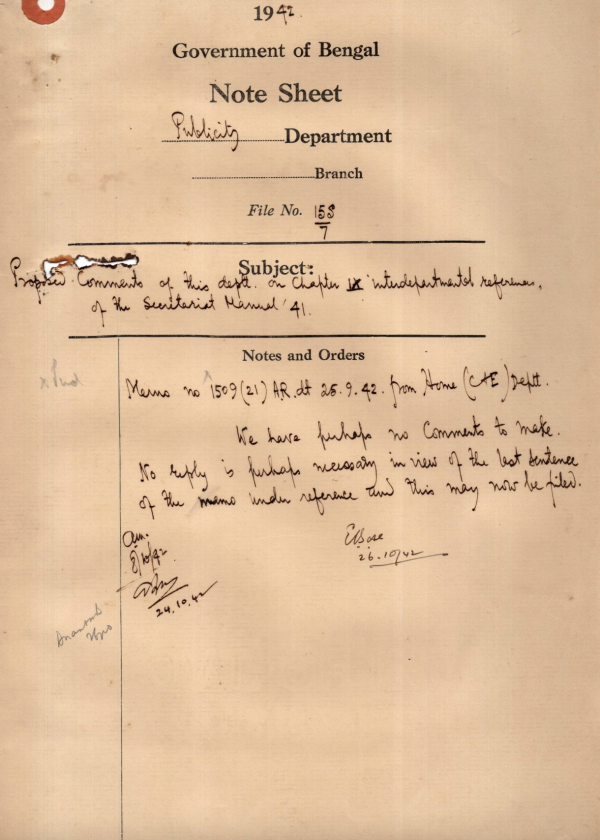 1942
Government of Bengal
Note Sheet
Publicity Department
Branch
File No. 158/7
Subject:
Proposed Comments of this deptt. on Chapter IX 'interdepartmental references,
of the Secretariat Manual '41.
Notes and Orders
Memo no 1509(21) AR. dt 25.9.42. from Home (C&E) Deptt.
We have perhaps no Comments to make.
No reply is perhaps necessary in view of the last sentence
of the memo under reference and this may now be filed.
EBose
26.10/42
24.10.42